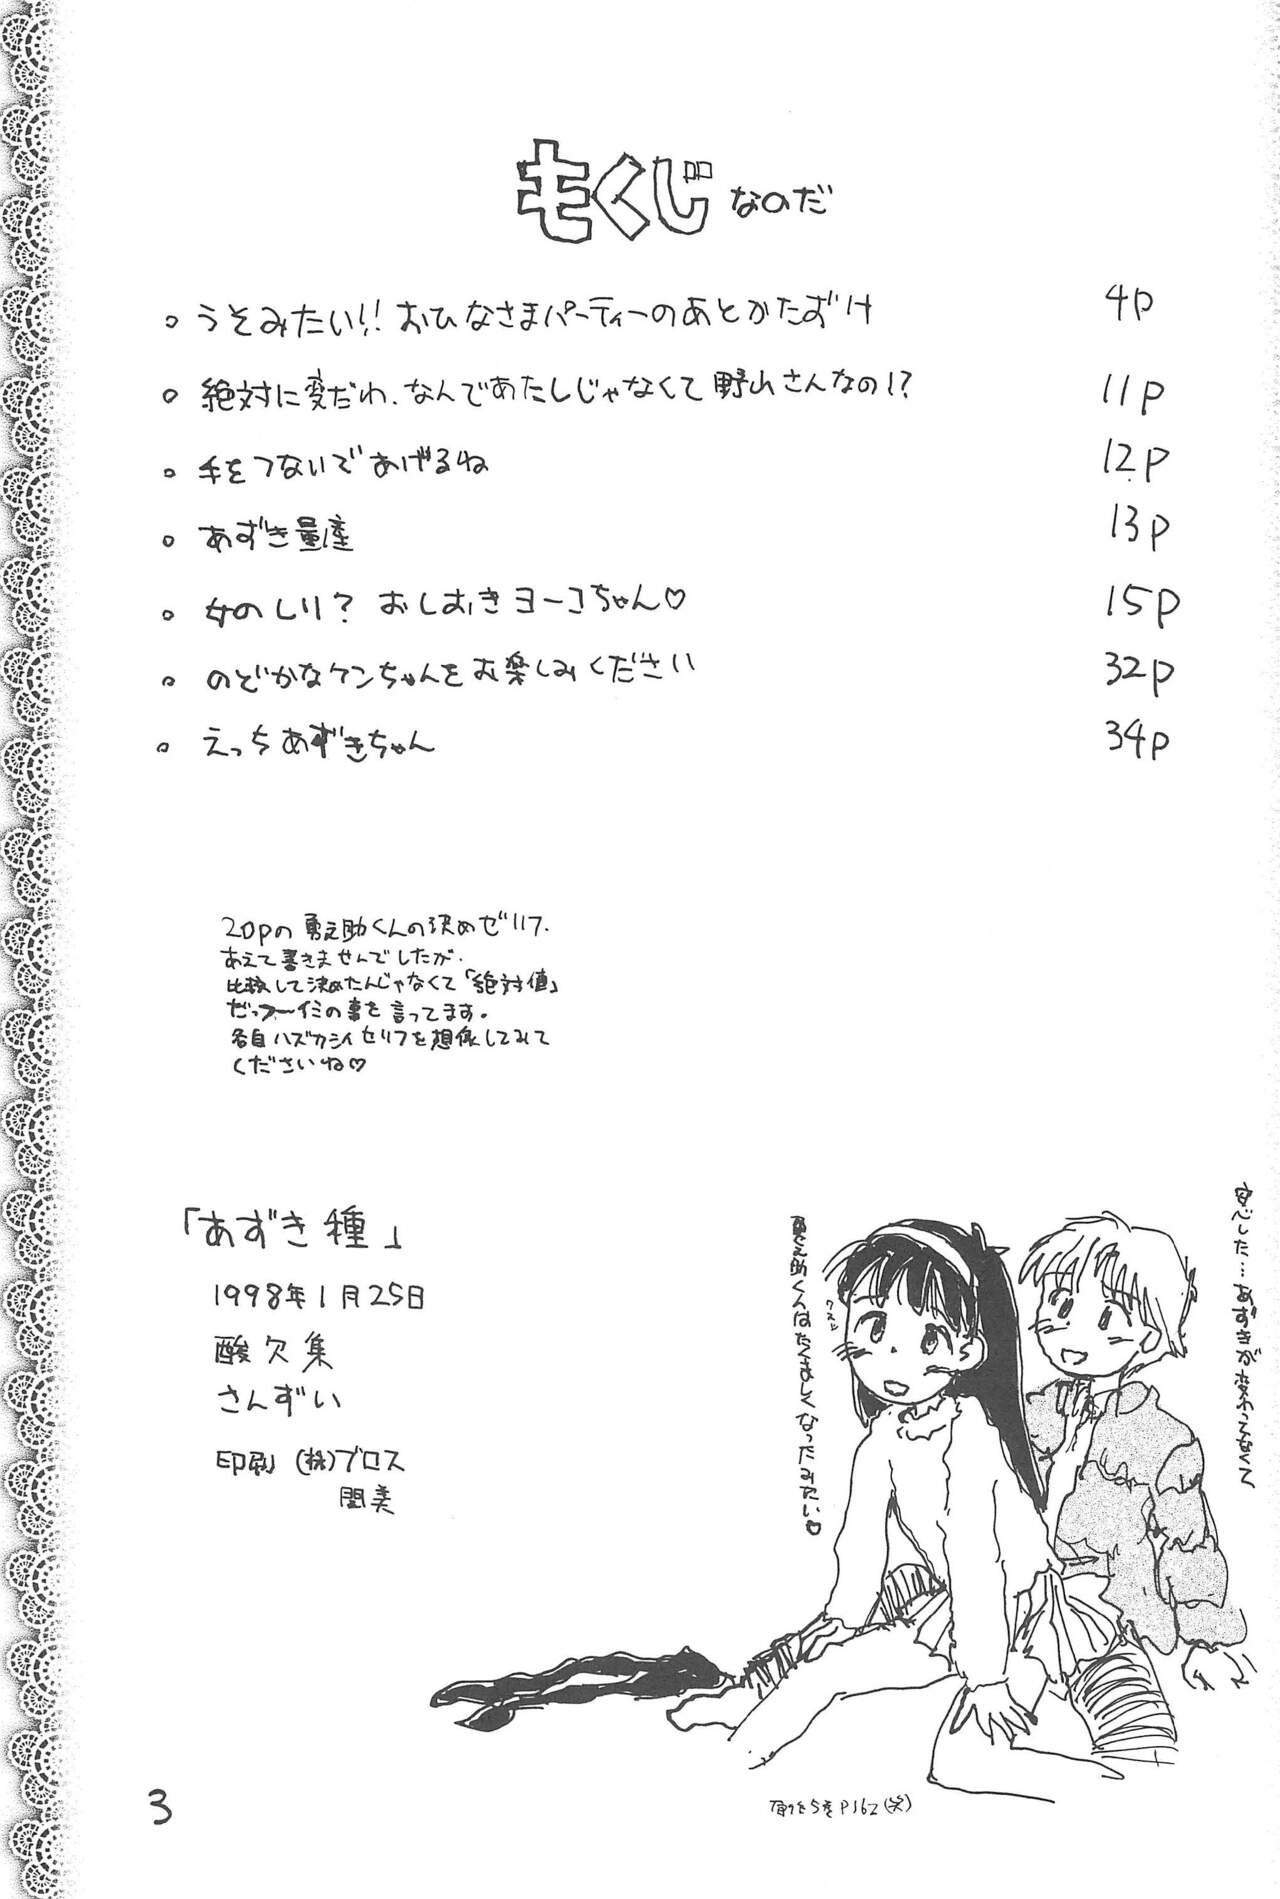 もくじなのだ
うそみたい!! おひなさまパーティーのあとかたずけ 4p
絶対に変だわ、なんであたしじゃなくて野山さんなの!? 11p
手をつないであげるね 12p
あずき量産 13p
女のしり? おしおきヨーコちゃん♡ 15p
のどかなケンちゃんをお楽しみください 32p
えっちあずきちゃん 34p
20pの勇之助くんの決めゼリフ、
あえて書きませんでしたが、
比較して決めたんじゃなくて「絶対値」
だっつーイミの事を言ってます。
各自ハズカシイセリフを想像してみて
くださいね♡
「あずき種」
1998年1月25日
酸欠集
さんずい
印刷 (株)ブロス
関美
安心した…あずきが変わってなくて
勇之助くんはたくましくなったみたい♡
クスッ
P162(笑)
3